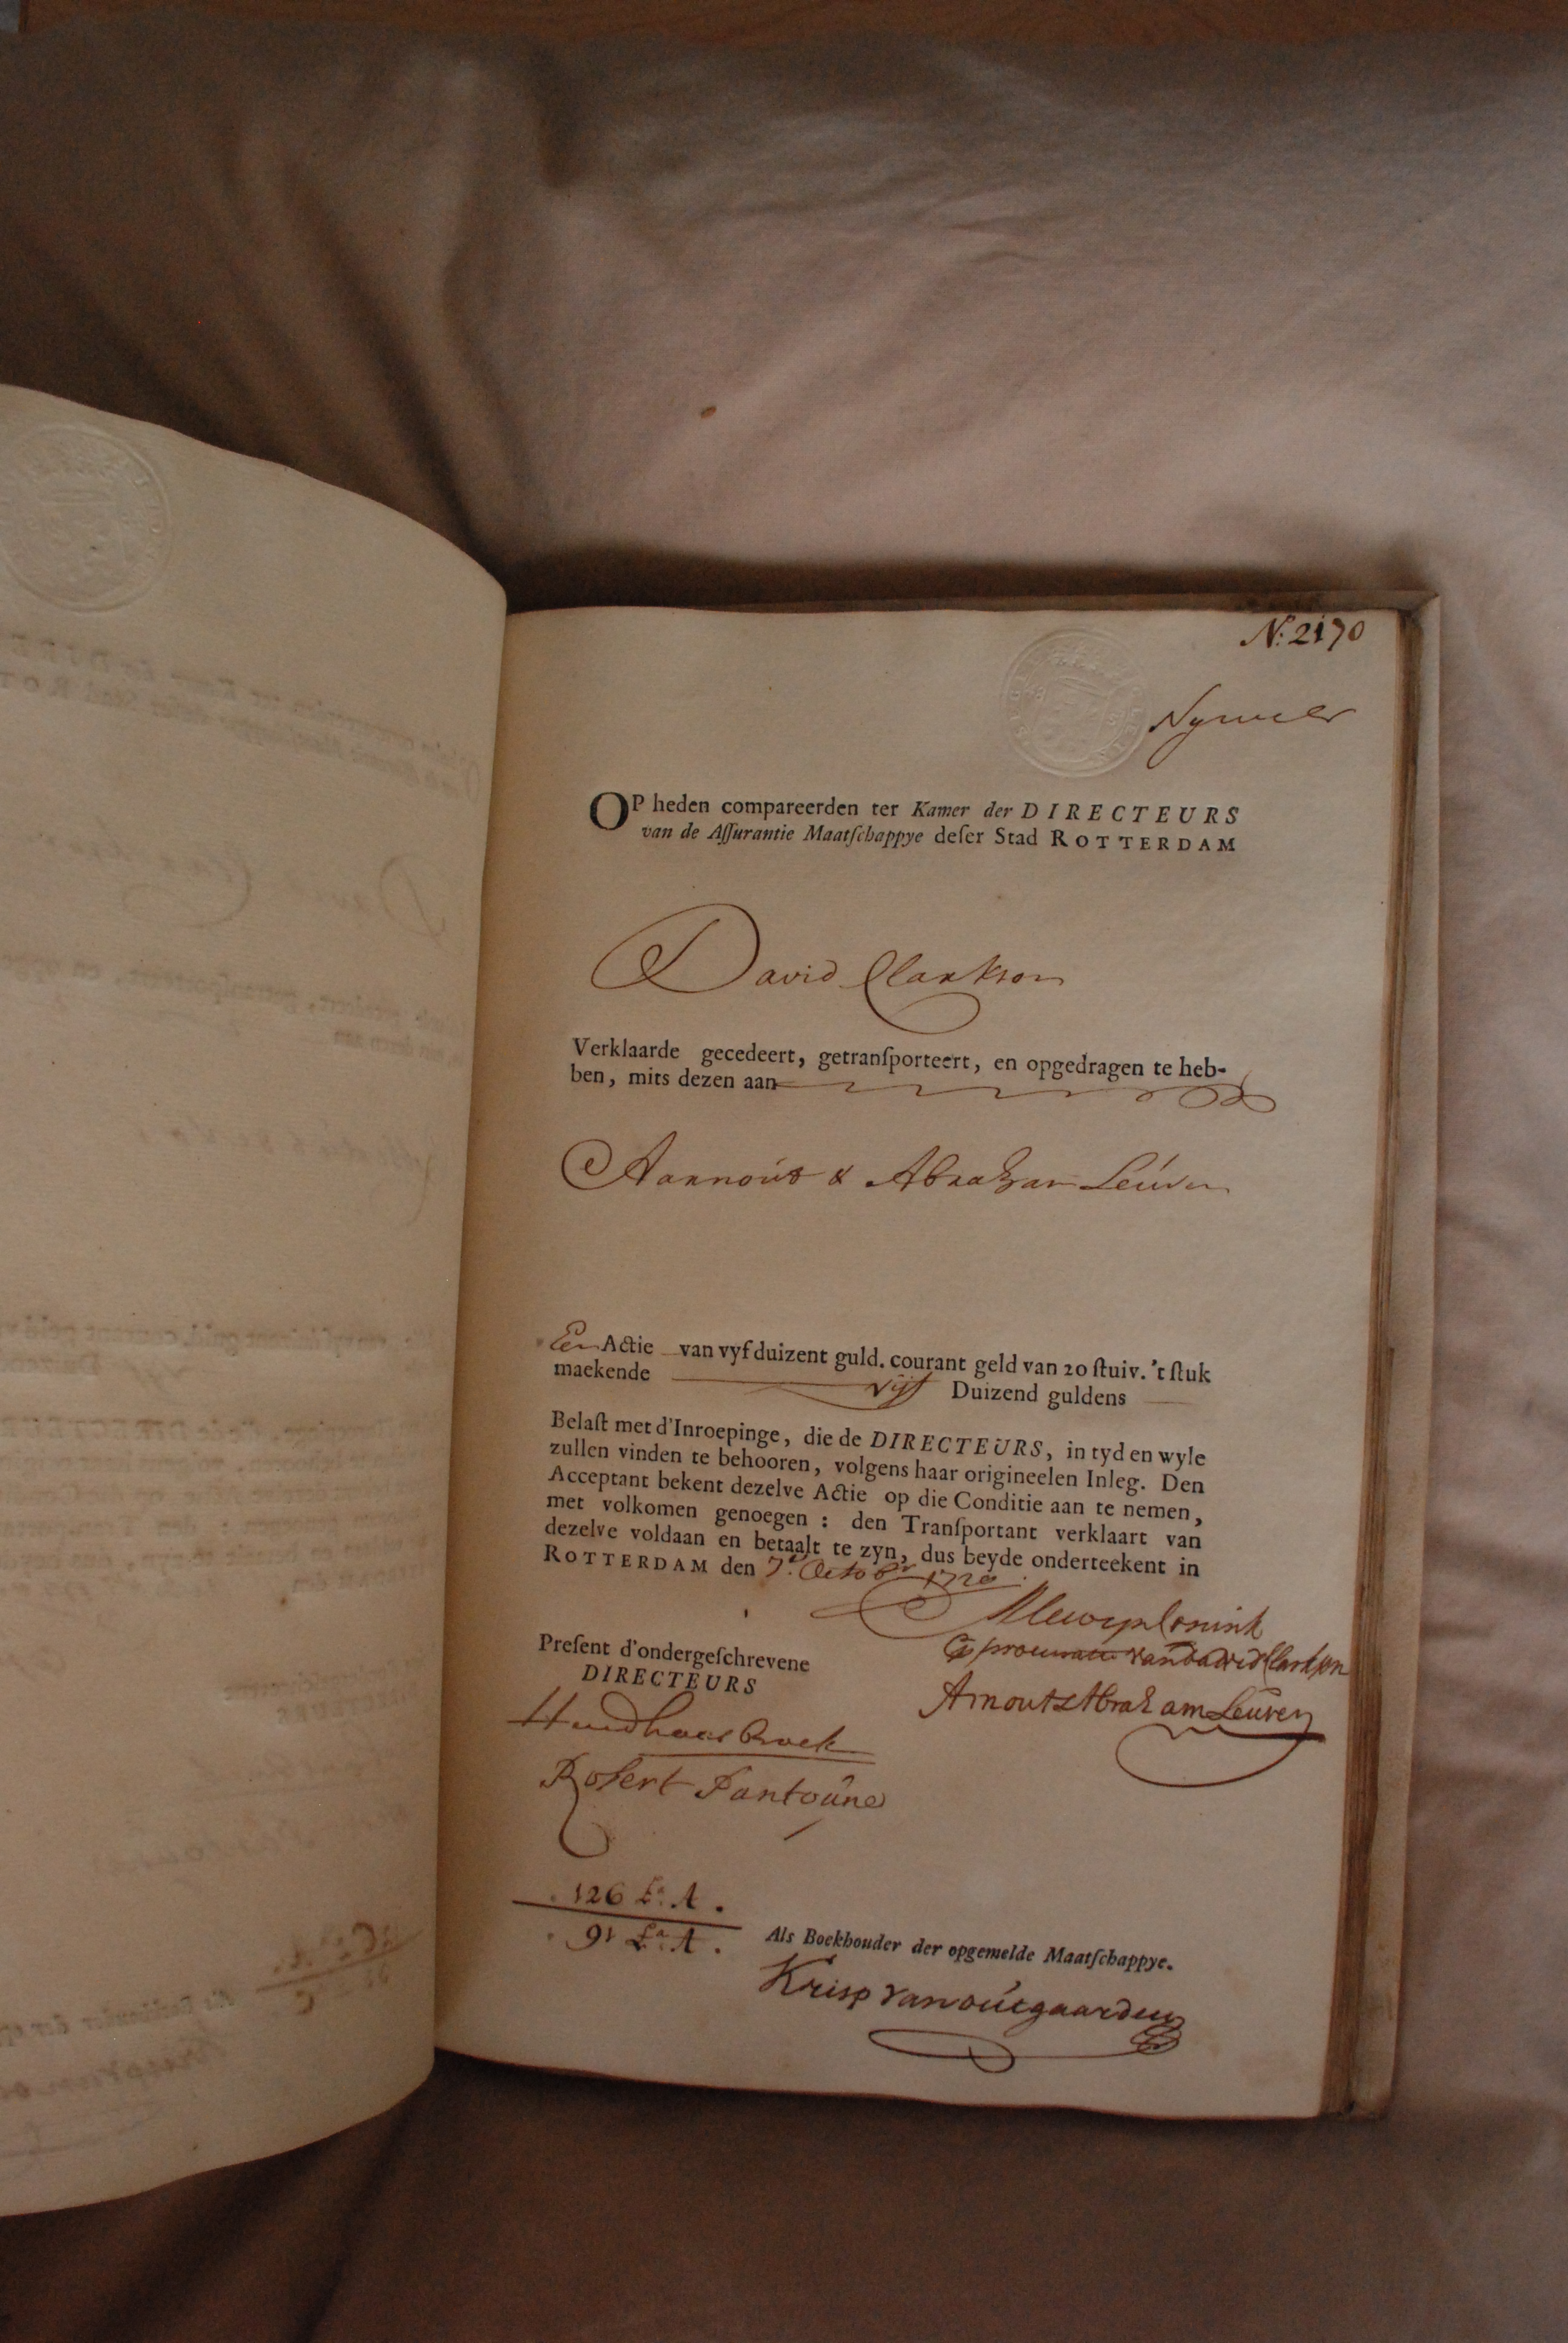 N: 2170
OP heden compareerden ter Kamer der DIRECTEURS
van de Aſſurantie Maatſchappye deſer Stad ROTTERDAM
David Clarkson
Verklaarde gecedeert, getranſporteert, en opgedragen te heb-
ben, mits dezen aan
Aarnout & Abraham Leuven
Een Actie van vyf duizent guld. courant geld van 20 ſtuiv. 't ſtuk
maekende vijf Duizend guldens
Belaſt met d'Inroepinge, die de DIRECTEURS, in tyd en wyle
zullen vinden te behooren, volgens haar origineelen Inleg. Den
Acceptant bekent dezelve Actie op die Conditie aan te nemen,
met volkomen genoegen : den Tranſportant verklaart van
dezelve voldaan en betaalt te zyn, dus beyde onderteekent in
ROTTERDAM den 7.e Octobr 1720
van david Clarkson
Arnout & Abraham Leuven
Preſent d'ondergeſchrevene
DIRECTEURS
Robert Fantoúne
126 L.a A.
91 L.a A.
Als Boekhouder der opgemelde Maatſchappye.
Krisp van outgaarden